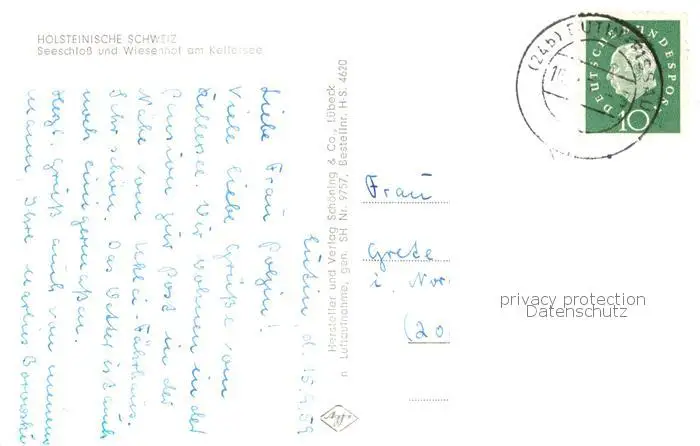 HOLSTEINISCHE SCHWEIZ
Seeschloß und Wiesenhof am Kellersee
Eutin, d. 15.9.59
Liebe Frau
Viele liebe Grüße vom
Kellersee. Wir wohnen in der
Pension zur Post in der
Nähe vom Uklei-Fährhaus.
Sehr schön. Das Wetter ist auch
noch einigermaßen.
Herzl. Grüße auch von meinem
Mann, Ihre
Hersteller und Verlag Schöning & Co., Lübeck
Luftaufnahme, gen. SH Nr. 9757, Bestellnr. H-S: 4620
(24b) EUTIN-
DEUTSCHE BUNDESPOST
10
Frau
Grete
i. Nor
(20
privacy protection
Datenschutz